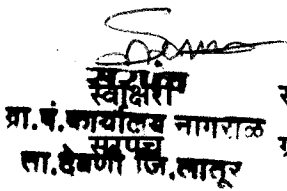 सरपंच
स्वाक्षरी
ग्रा.पं.कार्यालय नागराळ
सरपंच
ता.देवणी जि.लातूर